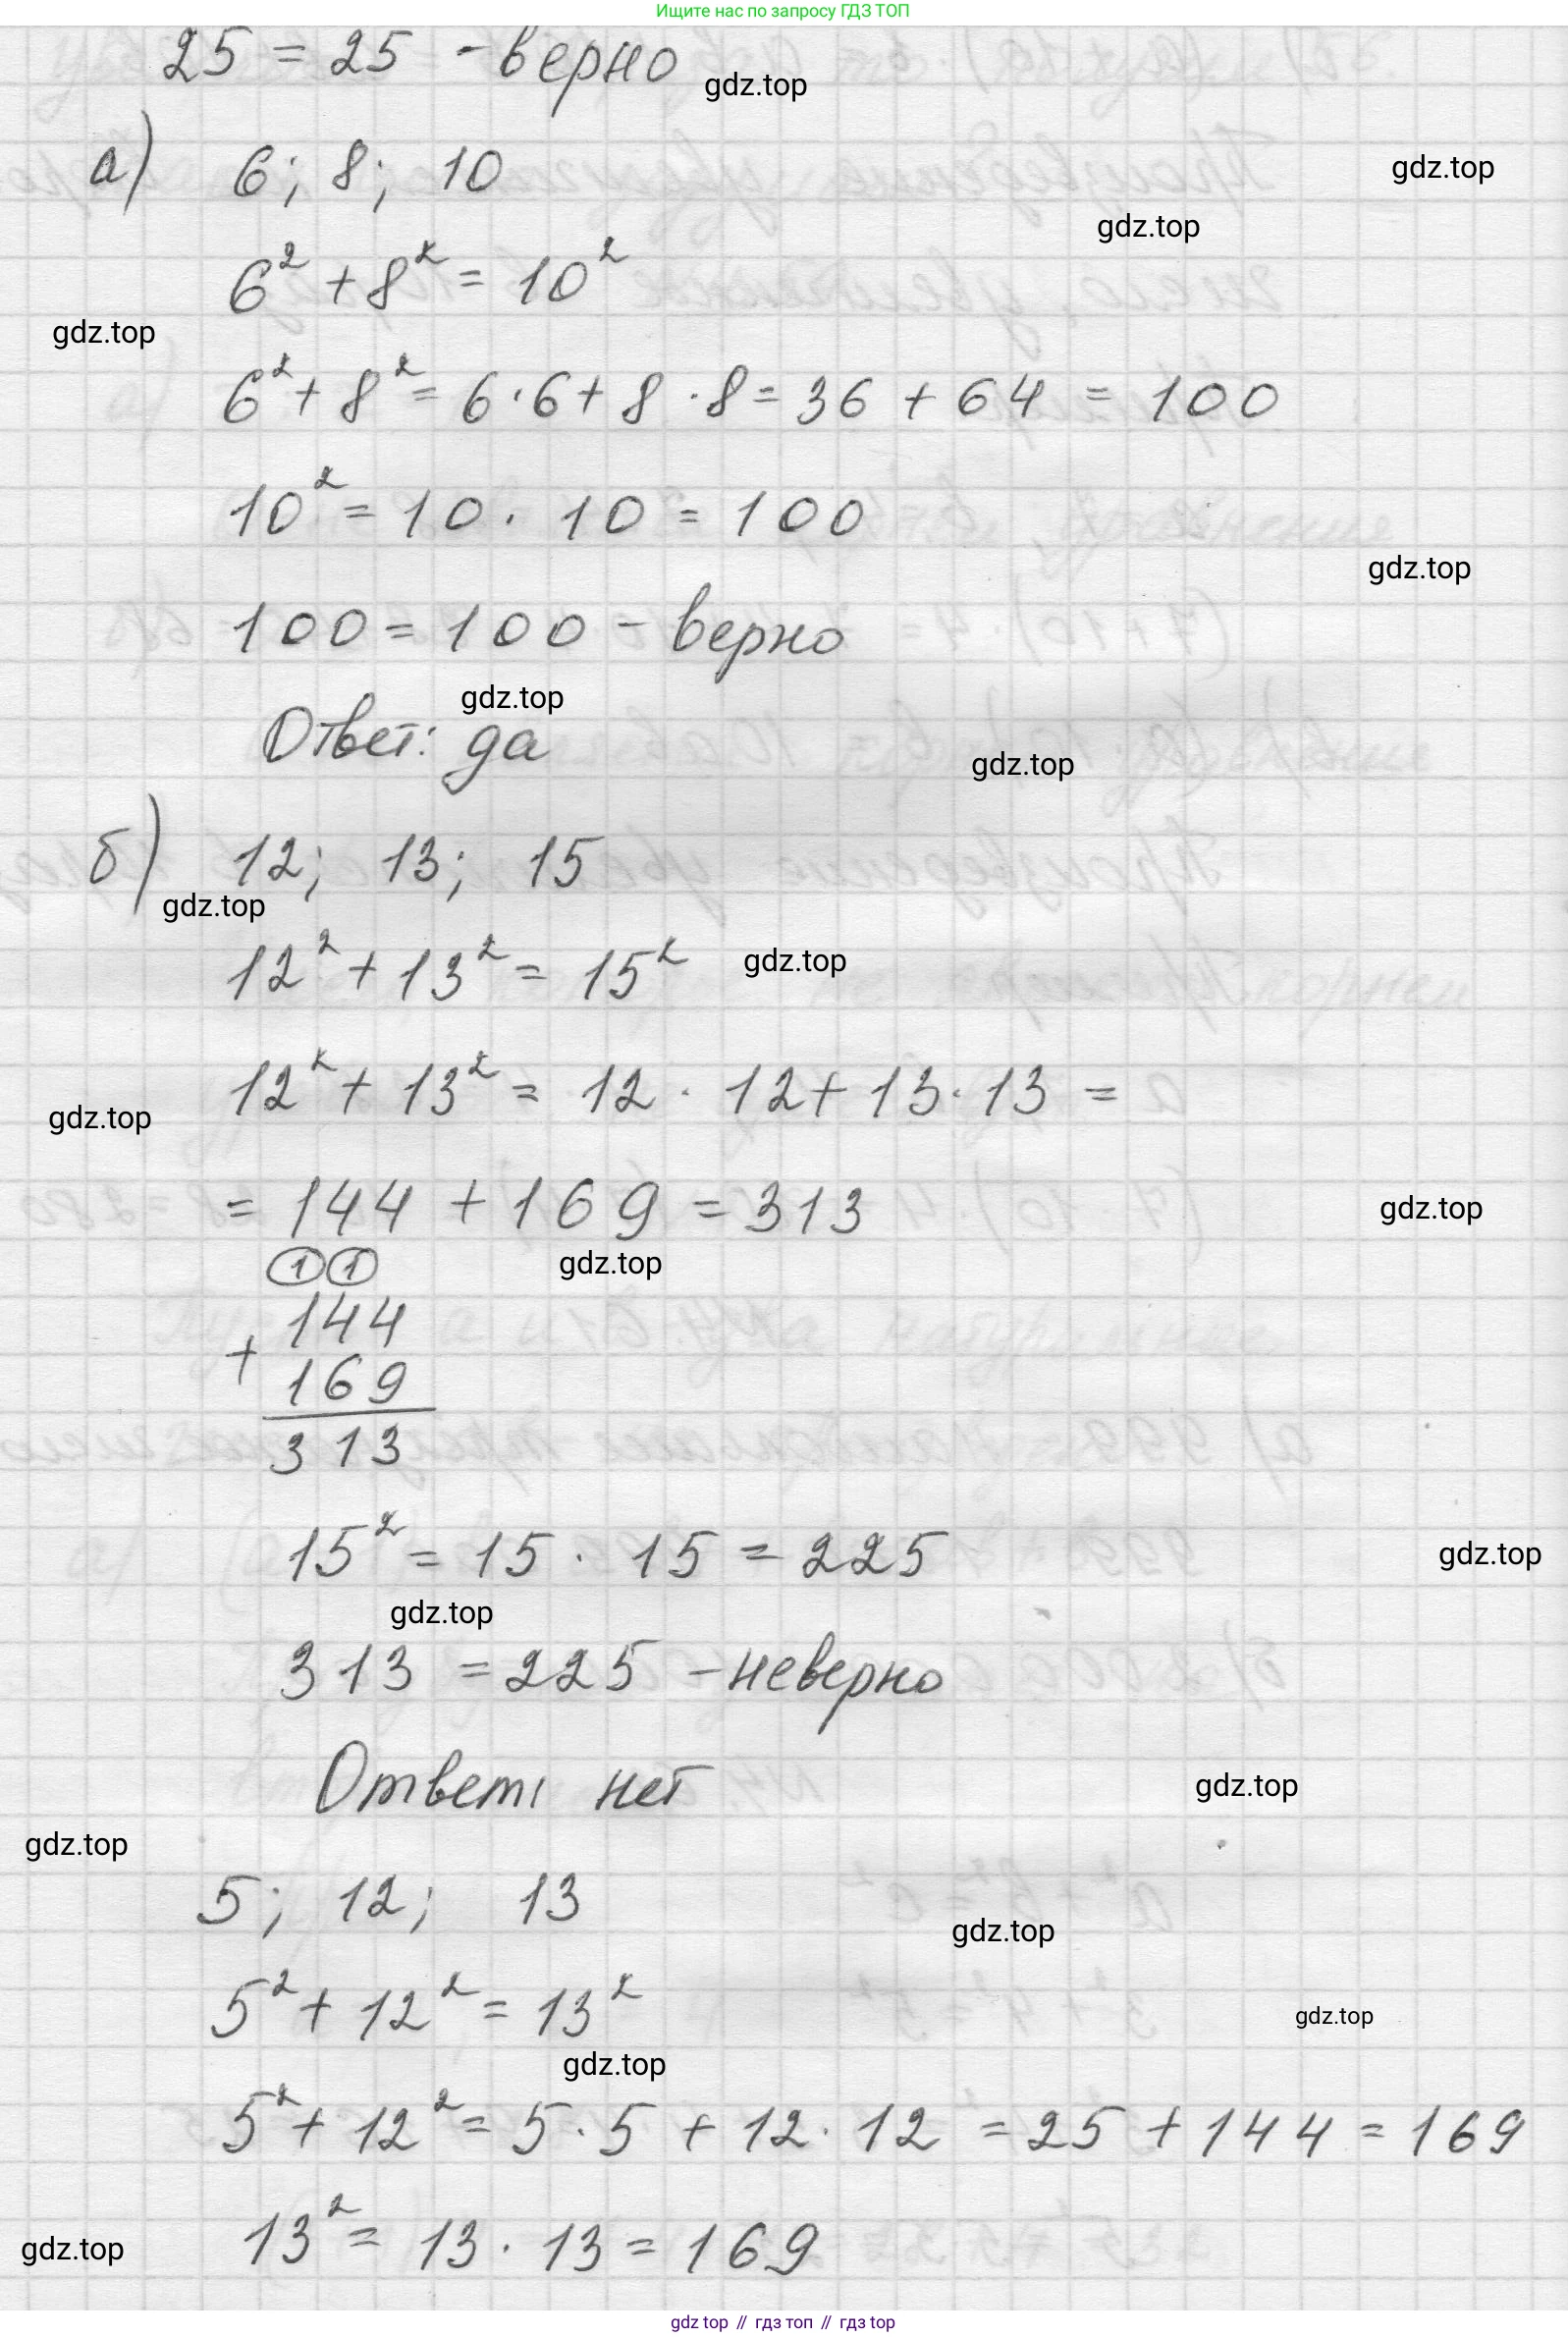 Ищите нас по запросу ГДЗ ТОП
25 = 25 - верно
gdz.top
а) 6; 8; 10
gdz.top
gdz.top
6² + 8² = 10²
gdz.top
6² + 8² = 6·6 + 8·8 = 36 + 64 = 100
10² = 10 · 10 = 100
gdz.top
100 = 100 - верно
gdz.top
Ответ: да
gdz.top
б) 12; 13; 15
gdz.top
12² + 13² = 15²
gdz.top
12² + 13² = 12 · 12 + 13 · 13 =
gdz.top
= 144 + 169 = 313
gdz.top
gdz.top
1 1
144
+
169
313
15² = 15 · 15 = 225
gdz.top
gdz.top
313 = 225 - неверно
Ответ: нет
gdz.top
gdz.top
5; 12; 13
gdz.top
5² + 12² = 13²
gdz.top
gdz.top
5² + 12² = 5·5 + 12·12 = 25 + 144 = 169
13² = 13 · 13 = 169
gdz.top
gdz top // гдз топ // гдз top